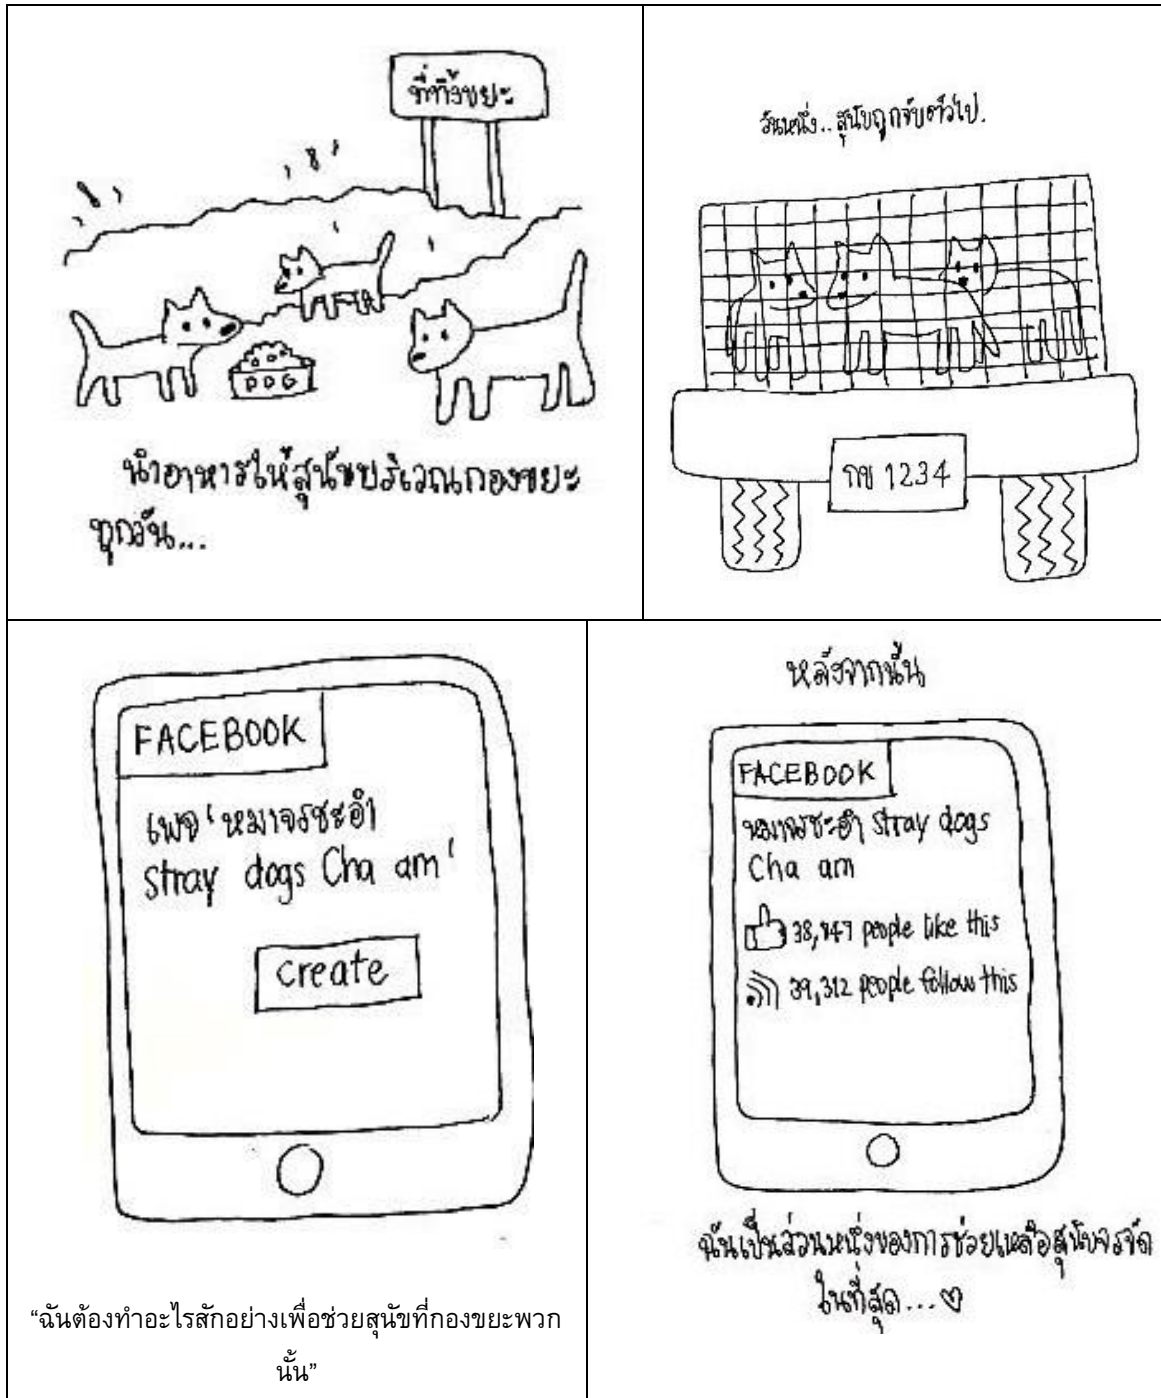 ที่ทิ้งขยะ
DOG
นำอาหารให้สุนัขบริเวณกองขยะ
ทุกวัน...
วันหนึ่ง.. สุนัขถูกจับตัวไป.
กข 1234
FACEBOOK
เพจ ‘หมาจรชะอำ
stray dogs Cha am’
create
“ฉันต้องทำอะไรสักอย่างเพื่อช่วยสุนัขที่กองขยะพวก
นั้น”
หลังจากนั้น
FACEBOOK
หมาจรชะอำ stray dogs
Cha am
people like this
39,312 people follow this
ฉันเป็นส่วนหนึ่งของการช่วยเหลือสุนัขจรจัด
ในที่สุด...